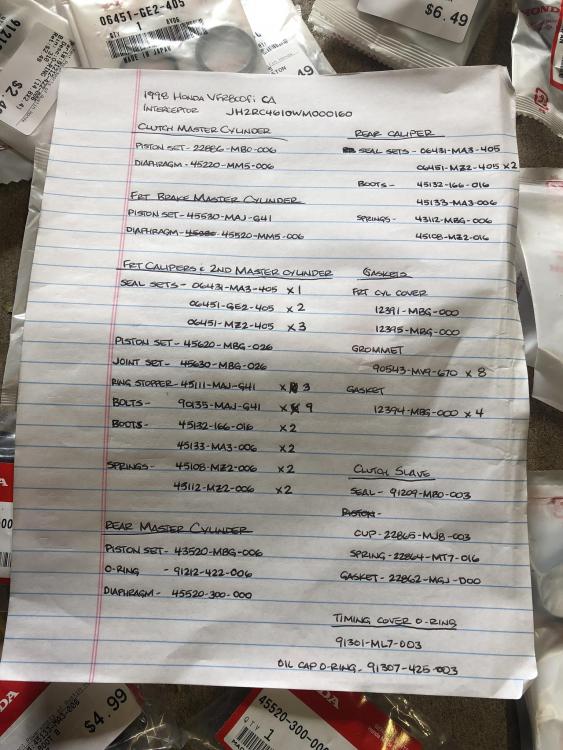 06451-GE2-405
QTY 1
MADE IN JAPAN
$6.49
HONDA
1998 HONDA VFR800Fi CA
INTERCEPTOR JH2RC4610WM000160
CLUTCH MASTER CYLINDER
PISTON SET - 22886-MB0-006
DIAPHRAGM - 45220-MM5-006
FRT BRAKE MASTER CYLINDER
PISTON SET - 45530-MAJ-G41
DIAPHRAGM - 45520-MM5-006
FRT CALIPERS & 2ND MASTER CYLINDER
SEAL SETS - 06431-MA3-405 x 1
06451-GE2-405 x 2
06451-MZ2-405 x 3
PISTON SET - 45620-MBG-026
JOINT SET - 45630-MBG-026
RING STOPPER - 45111-MAJ-G41 x 3
BOLTS - 90135-MAJ-G41 x 9
BOOTS - 45132-166-016 x 2
45133-MA3-006 x 2
SPRINGS - 45108-MZ2-006 x 2
45112-MZ2-006 x 2
REAR MASTER CYLINDER
PISTON SET - 43520-MBG-006
O-RING - 91212-422-006
DIAPHRAGM - 45520-300-000
REAR CALIPER
SEAL SETS - 06431-MA3-405
06451-MZ2-405 x 2
BOOTS - 45132-166-016
45133-MA3-006
SPRINGS - 43112-MBG-006
45108-MZ2-016
GASKETS
FRT CYL COVER
12391-MBG-000
12395-MBG-000
GROMMET
90543-MV9-670 x 8
GASKET
12394-MBG-000 x 4
CLUTCH SLAVE
SEAL - 91209-MB0-003
PISTON -
CUP - 22865-MJ8-003
SPRING - 22864-MT7-016
GASKET - 22862-MGJ-D00
TIMING COVER O-RING
91301-ML7-003
OIL CAP O-RING - 91307-425-003
$4.99
45520-300-00
QTY
1